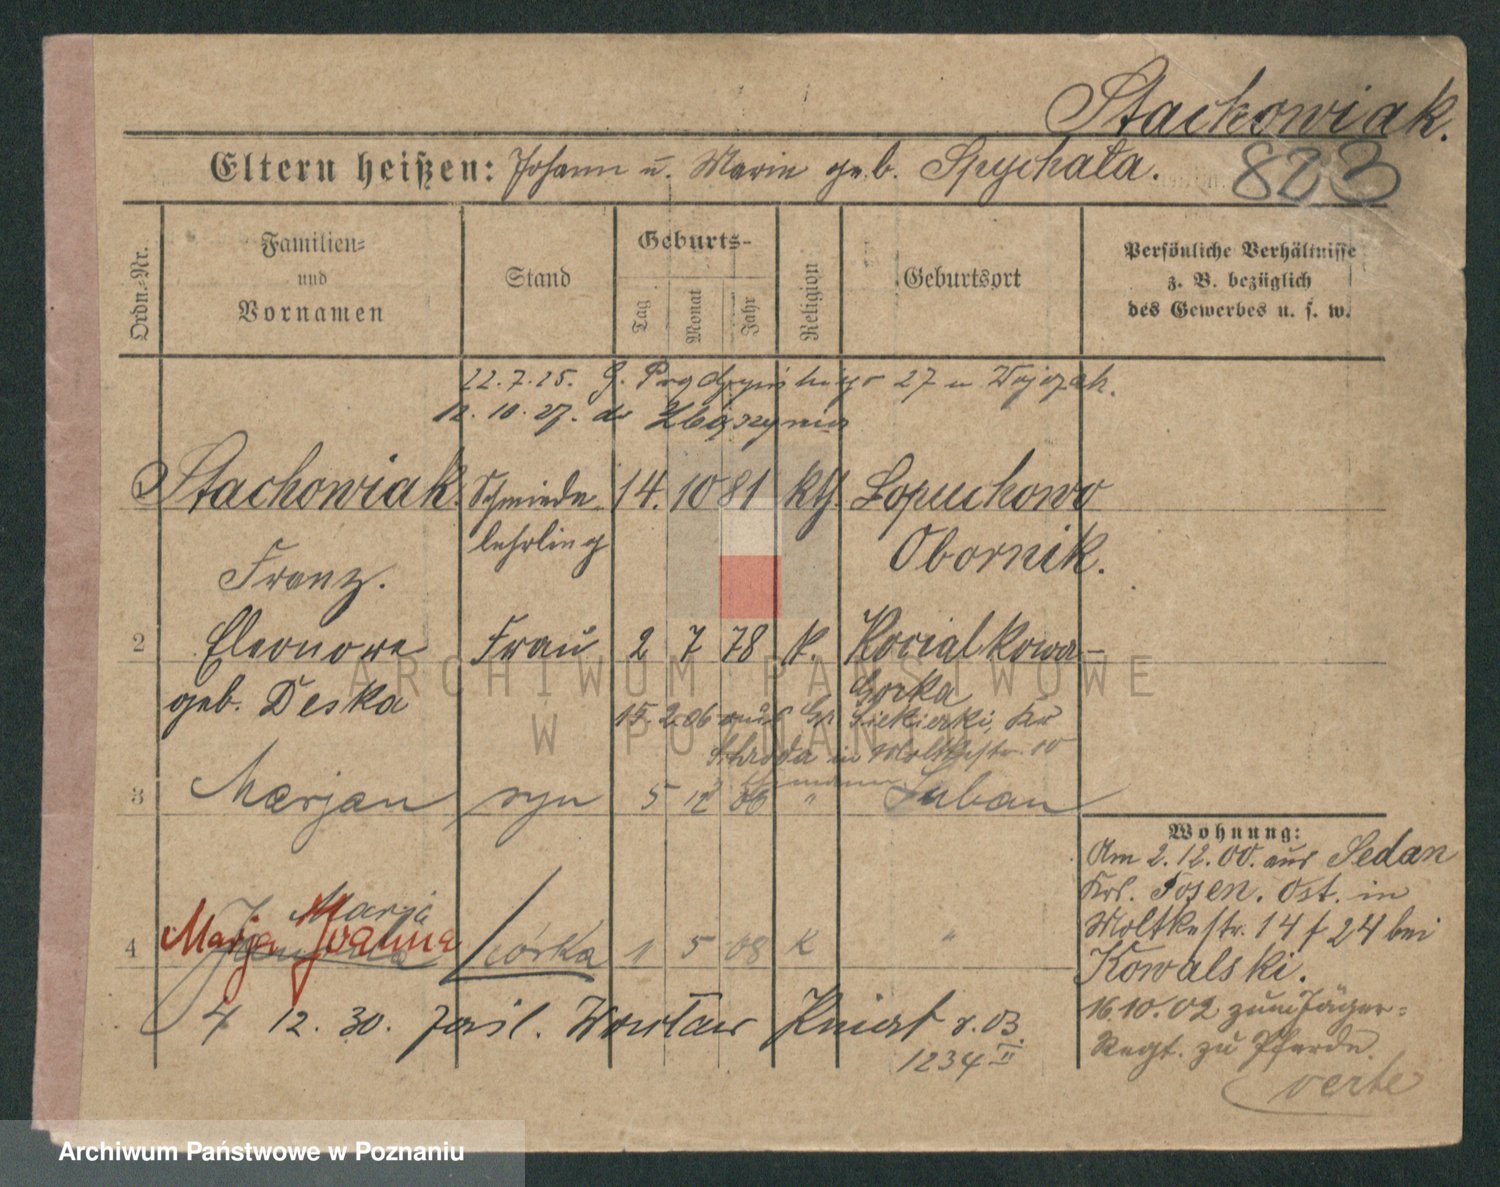 Stachowiak.
823
Eltern heißen: Johann u. Marie geb. Spychała.
Ordn.-Nr.
Familien-
und
Vornamen
Stand
Geburts-
Tag
Monat
Jahr
Religion
Geburtsort
Persönliche Verhältnisse
z. B. bezüglich
des Gewerbes u. s. w.
22.7.25. G. 27 u
12.10.27. do Zbąszynia
Stachowiak Schmiede 14. 10 81 kth. Łopuchowo
lehrling Obornik.
Franz.
2 Eleonore Frau 2 7 78 k. Kocialkowa-
geb. Deska Gorka
15.2.06 aus Gr Siekierki, Kr
Schroda in Moltkestr. 10
3 Marjan syn 5 12 06 " Luban
Marja
4 Marja Joanna córka 1 5 08 K "
4 12. 30. Wrocław r. 03.
1234 II
Wohnung:
Am 2.12.00. aus Sedan
Krs. Posen. Ost. in
Moltkestr. 14 f 24 bei
Kowalski.
16.10.02 zum Jäger-
Regt. zu Pferde.
verte
ARCHIWUM PAŃSTWOWE
W POZNANIU
Archiwum Państwowe w Poznaniu